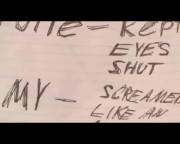 KEPT
EYES
SHUT
MY - SCREAMED
LIKE AN